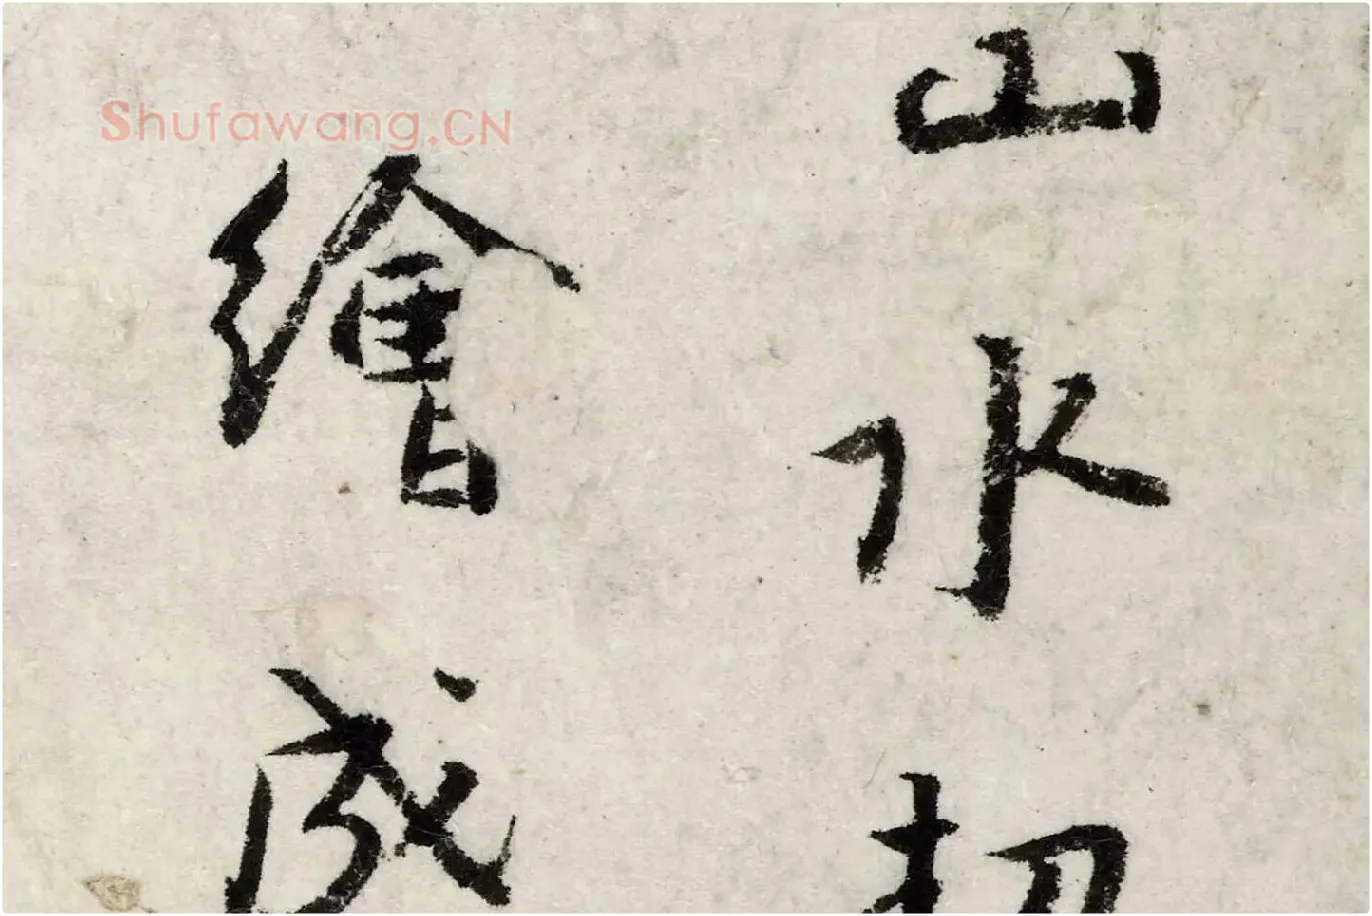 山水初
繪成
Shufawang.CN